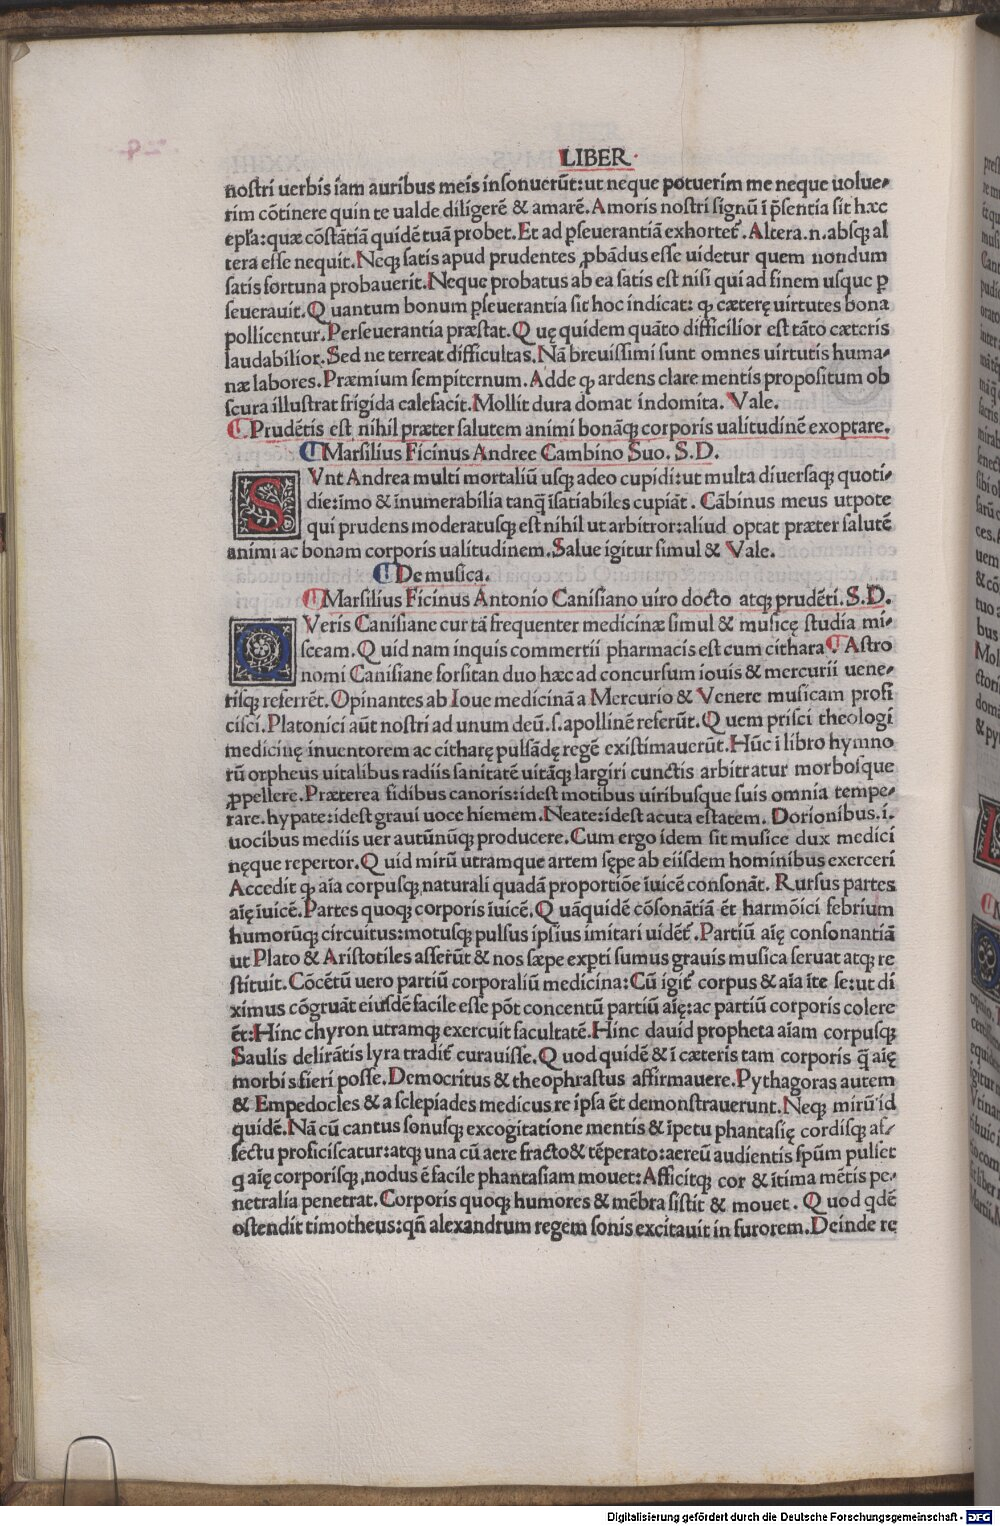 LIBER
noſtri uerbis iam auribus meis inſonuerūt:ut neque potuerim me neque uolue-
rim cōtinere quin te ualde diligerē & amarē.Amoris noſtri ſignū ī p̄ſentia ſit hæc
epl̄a:quæ cōſtātiā quidē tuā probet.Et ad ꝑſeuerantiā exhortet᷑.Altera.n.abſqꝫ al
tera eſſe nequit.Neqꝫ ſatis apud prudentes ꝓbādus eſſe uidetur quem nondum
ſatis fortuna probauerit.Neque probatus ab ea ſatis eſt niſi qui ad finem uſque ꝑ
ſeuerauit.Quantum bonum ꝑſeuerantia ſit hoc indicat: qꝫ cæterę uirtutes bona
pollicentur.Perſeuerantia præſtat.Quę quidem quāto difficilior eſt tāto cæteris
laudabilior.Sed ne terreat difficultas.Nā breuiſſimi ſunt omnes uirtutis huma-
næ labores.Præmium ſempiternum.Adde qꝫ ardens clare mentis propoſitum ob
ſcura illuſtrat frigida calefacit.Mollit dura domat indomita. Vale.
Prudētis eſt nihil præter ſalutem animi bonāqꝫ corporis ualitudinē exoptare.
Marſilius Ficinus Andree Cambino Suo. S.D.
SVnt Andrea multi mortaliū uſqꝫ adeo cupidi:ut multa diuerſaqꝫ quoti-
die:imo & īnumerabilia tanq̄ īſatiabiles cupiāt. Cābinus meus utpote
qui prudens moderatuſqꝫ eſt nihil ut arbitror:aliud optat præter ſalutē
animi ac bonam corporis ualitudinem.Salue igitur ſimul & Vale.
De muſica.
Marſilius Ficinus Antonio Caniſiano uiro docto atqꝫ prudēti.S.D.
QVeris Caniſiane cur tā frequenter medicinæ ſimul & muſicę ſtudia mi-
ſceam.Quid nam inquis commertii pharmacis eſt cum cithara Aſtro
nomi Caniſiane forſitan duo hæc ad concurſum iouis & mercurii uene-
riſqꝫ referrēt.Opinantes ab Ioue medicinā a Mercurio & Venere muſicam profi
ciſci.Platonici aūt noſtri ad unum deū.ſ.apollinē referūt.Quem priſci theologi
medicinę inuentorem ac citharę pulſādę regē exiſtimauerūt.Hūc ī libro hymno
rū orpheus uitalibus radiis ſanitatē uitāqꝫ largiri cunctis arbitratur morboſque
ꝓpellere.Præterea fidibus canoris:ideſt motibus uiribuſque ſuis omnia tempe-
rare.hypate:ideſt graui uoce hiemem.Neate:ideſt acuta eſtatem. Dorionibus.i.
uocibus mediis uer autūnūqꝫ producere.Cum ergo idem ſit muſice dux medici
nęque repertor.Quid mirū utramque artem ſępe ab eiiſdem hominibus exerceri
Accedit qꝫ aīa corpuſqꝫ naturali quadā proportiōe īuicē conſonāt. Rurſus partes
aīę īuicē.Partes quoqꝫ corporis īuicē.Quāquidē cōſonātiā ēt harmōici febrium
humorūqꝫ circuitus:motuſqꝫ pulſus ipſius imitari uidēt᷑.Partiū aīę conſonantiā
ut Plato & Ariſtotiles aſſerūt & nos ſæpe exꝑti ſumus grauis muſica ſeruat atqꝫ re
ſtituit.Cōcētū uero partiū corporaliū medicina:Cū igit᷑ corpus & aīa īte ſe:ut di
ximus cōgruāt eiuſdē facile eſſe pōt concentū partiū aīę:ac partiū corporis colere
ēt:Hinc chyron utramqꝫ exercuit facultatē.Hinc dauid propheta aīam corpuſqꝫ
Saulis delirātis lyra tradit᷑ curauiſſe.Quod quidē & ī cæteris tam corporis q̄ aīę
morbis fieri poſſe.Democritus & theophraſtus affirmauere.Pythagoras autem
& Empedocles & aſclepiades medicus re ipſa ēt demonſtrauerunt.Neqꝫ mirū id
quidē.Nā cū cantus ſonuſqꝫ excogitatione mentis & īpetu phantaſię cordiſqꝫ af-
fectu proficiſcatur:atqꝫ una cū aere fracto & tēperato:aereū audientis ſpūm pulſet
q aīę corporiſqꝫ nodus ē facile phantaſiam mouet:Afficitqꝫ cor & ītima mētis pe-
netralia penetrat.Corporis quoqꝫ humores & mēbra ſiſtit & mouet. Quod qdē
oſtendit timotheus:qñ alexandrum regem ſonis excitauit in furorem.Deinde re
Digitalisierung gefördert durch die Deutsche Forschungsgemeinschaft - DFG